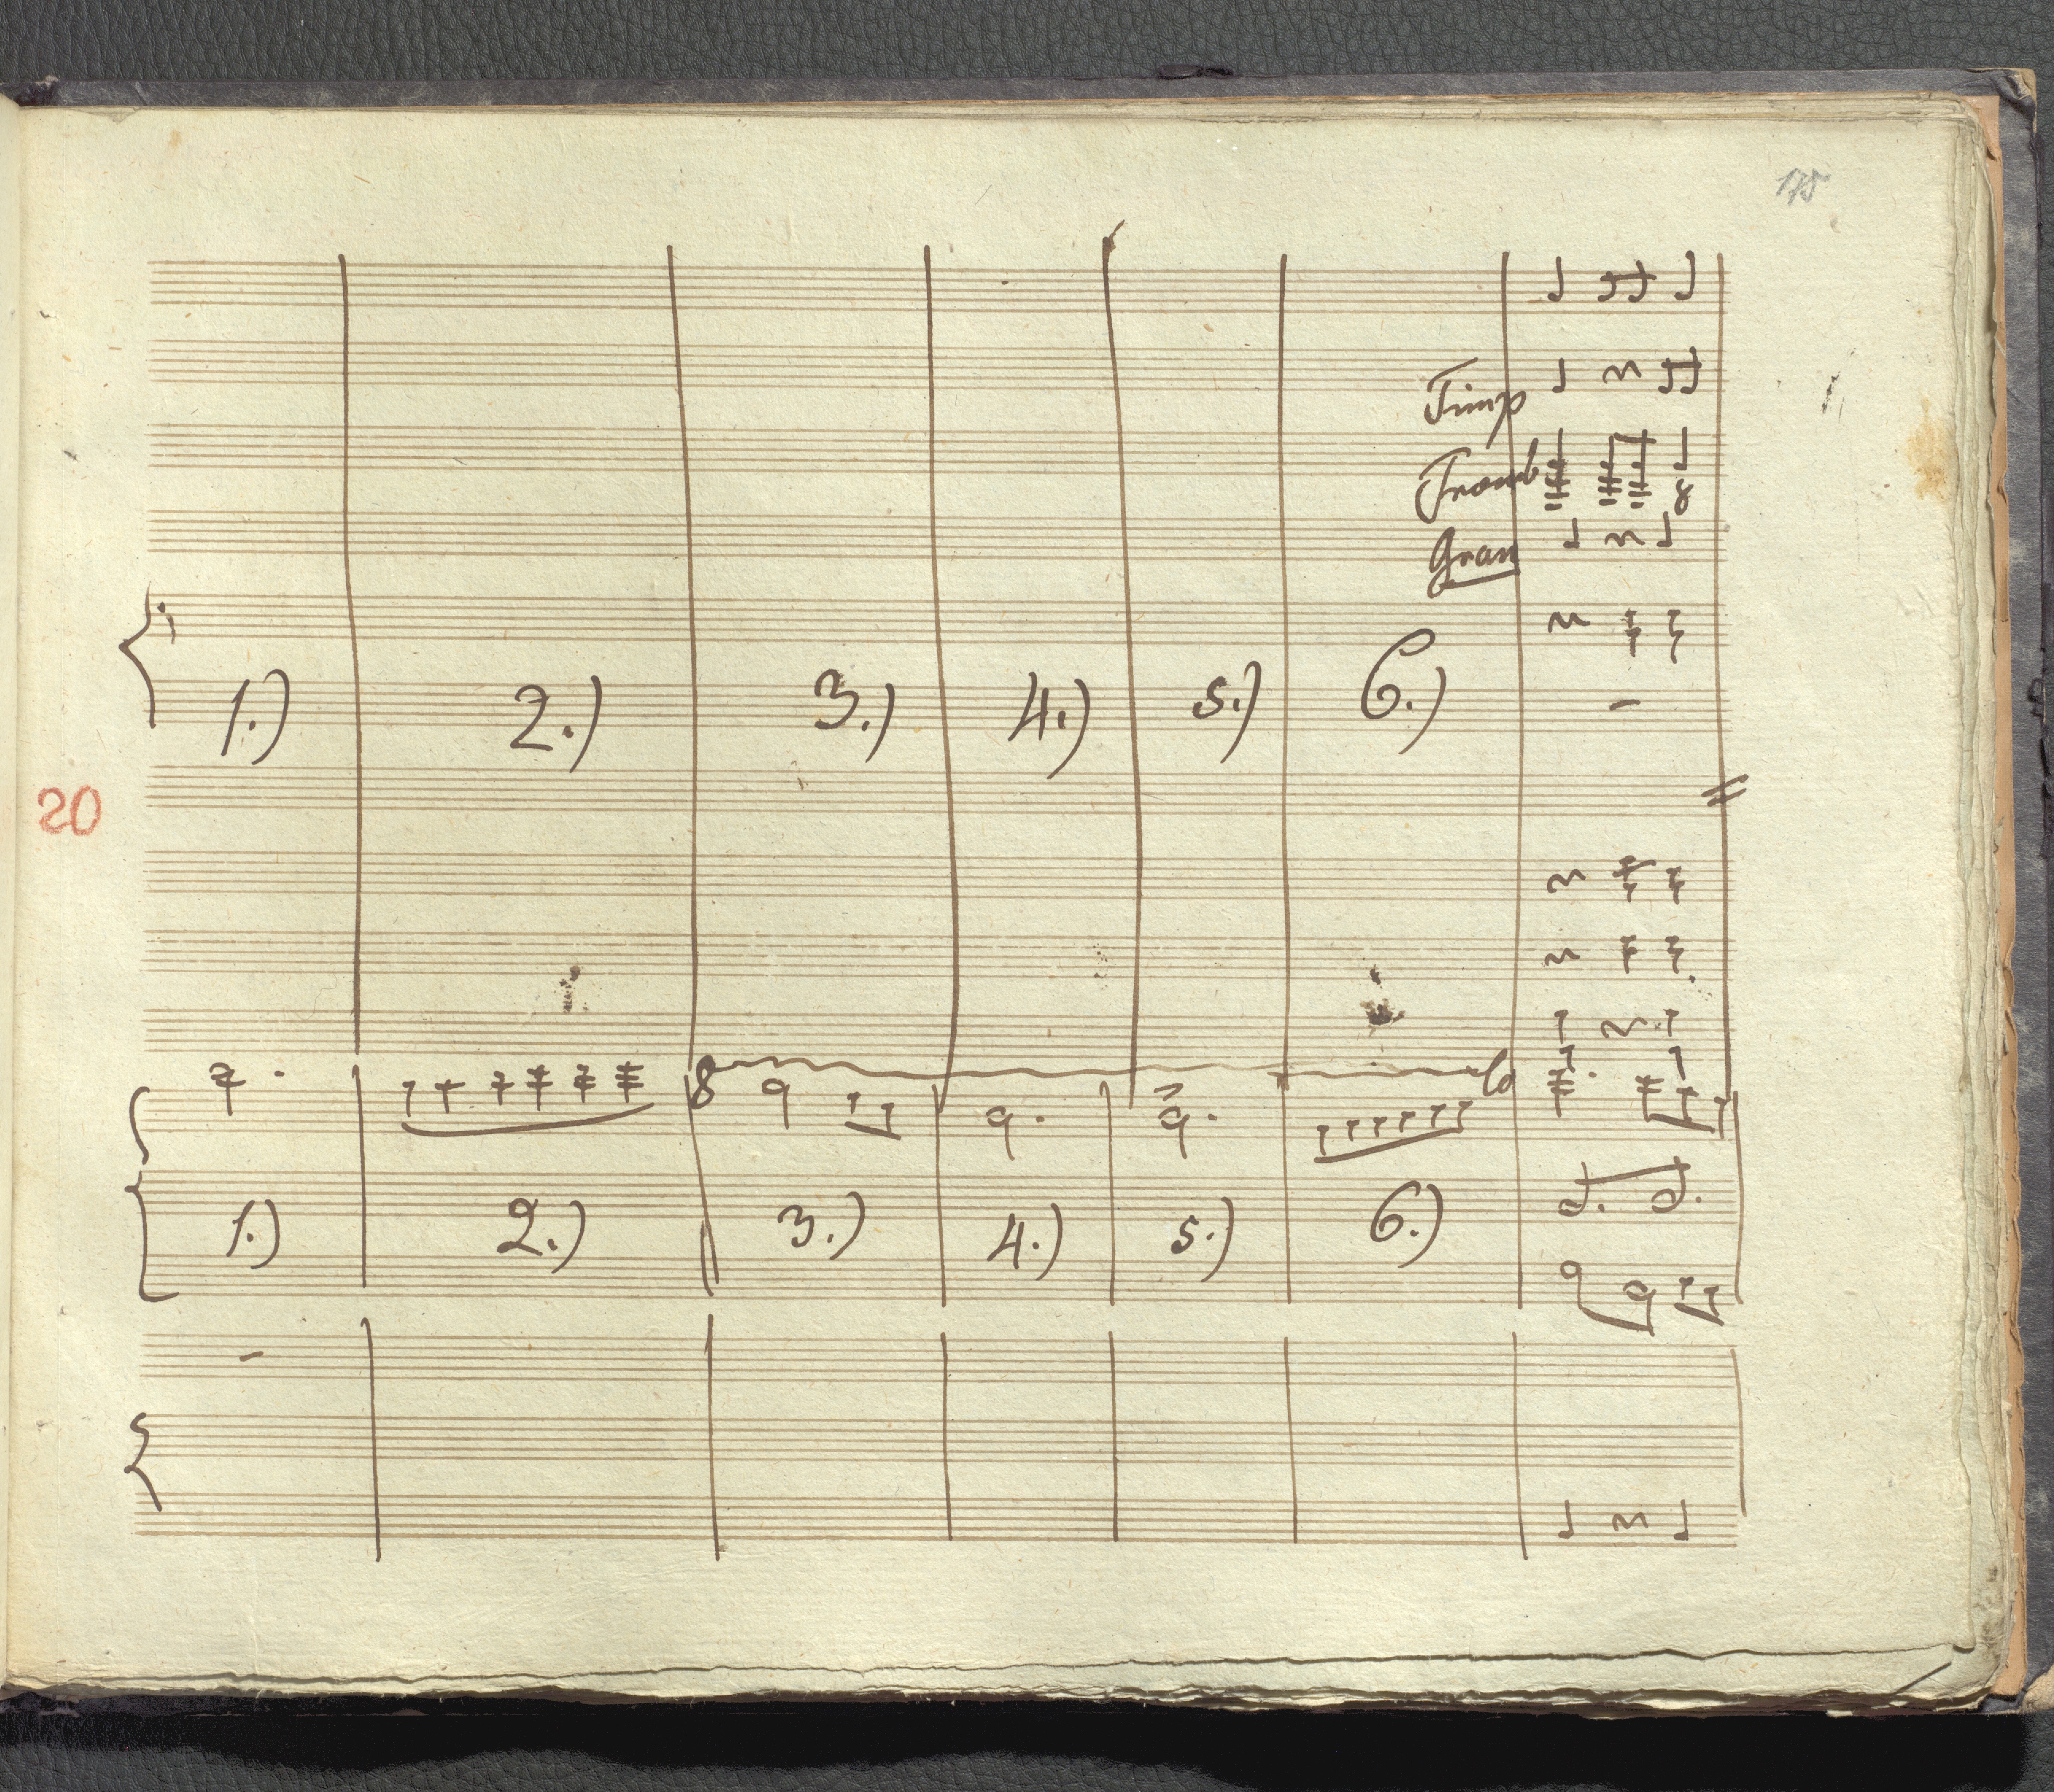 175
Timp
Tromb
Gran
1.) 2.) 3.) 4.) 5.) 6.)
20
8 lo
1.) 2.) 3.) 4.) 5.) 6.)